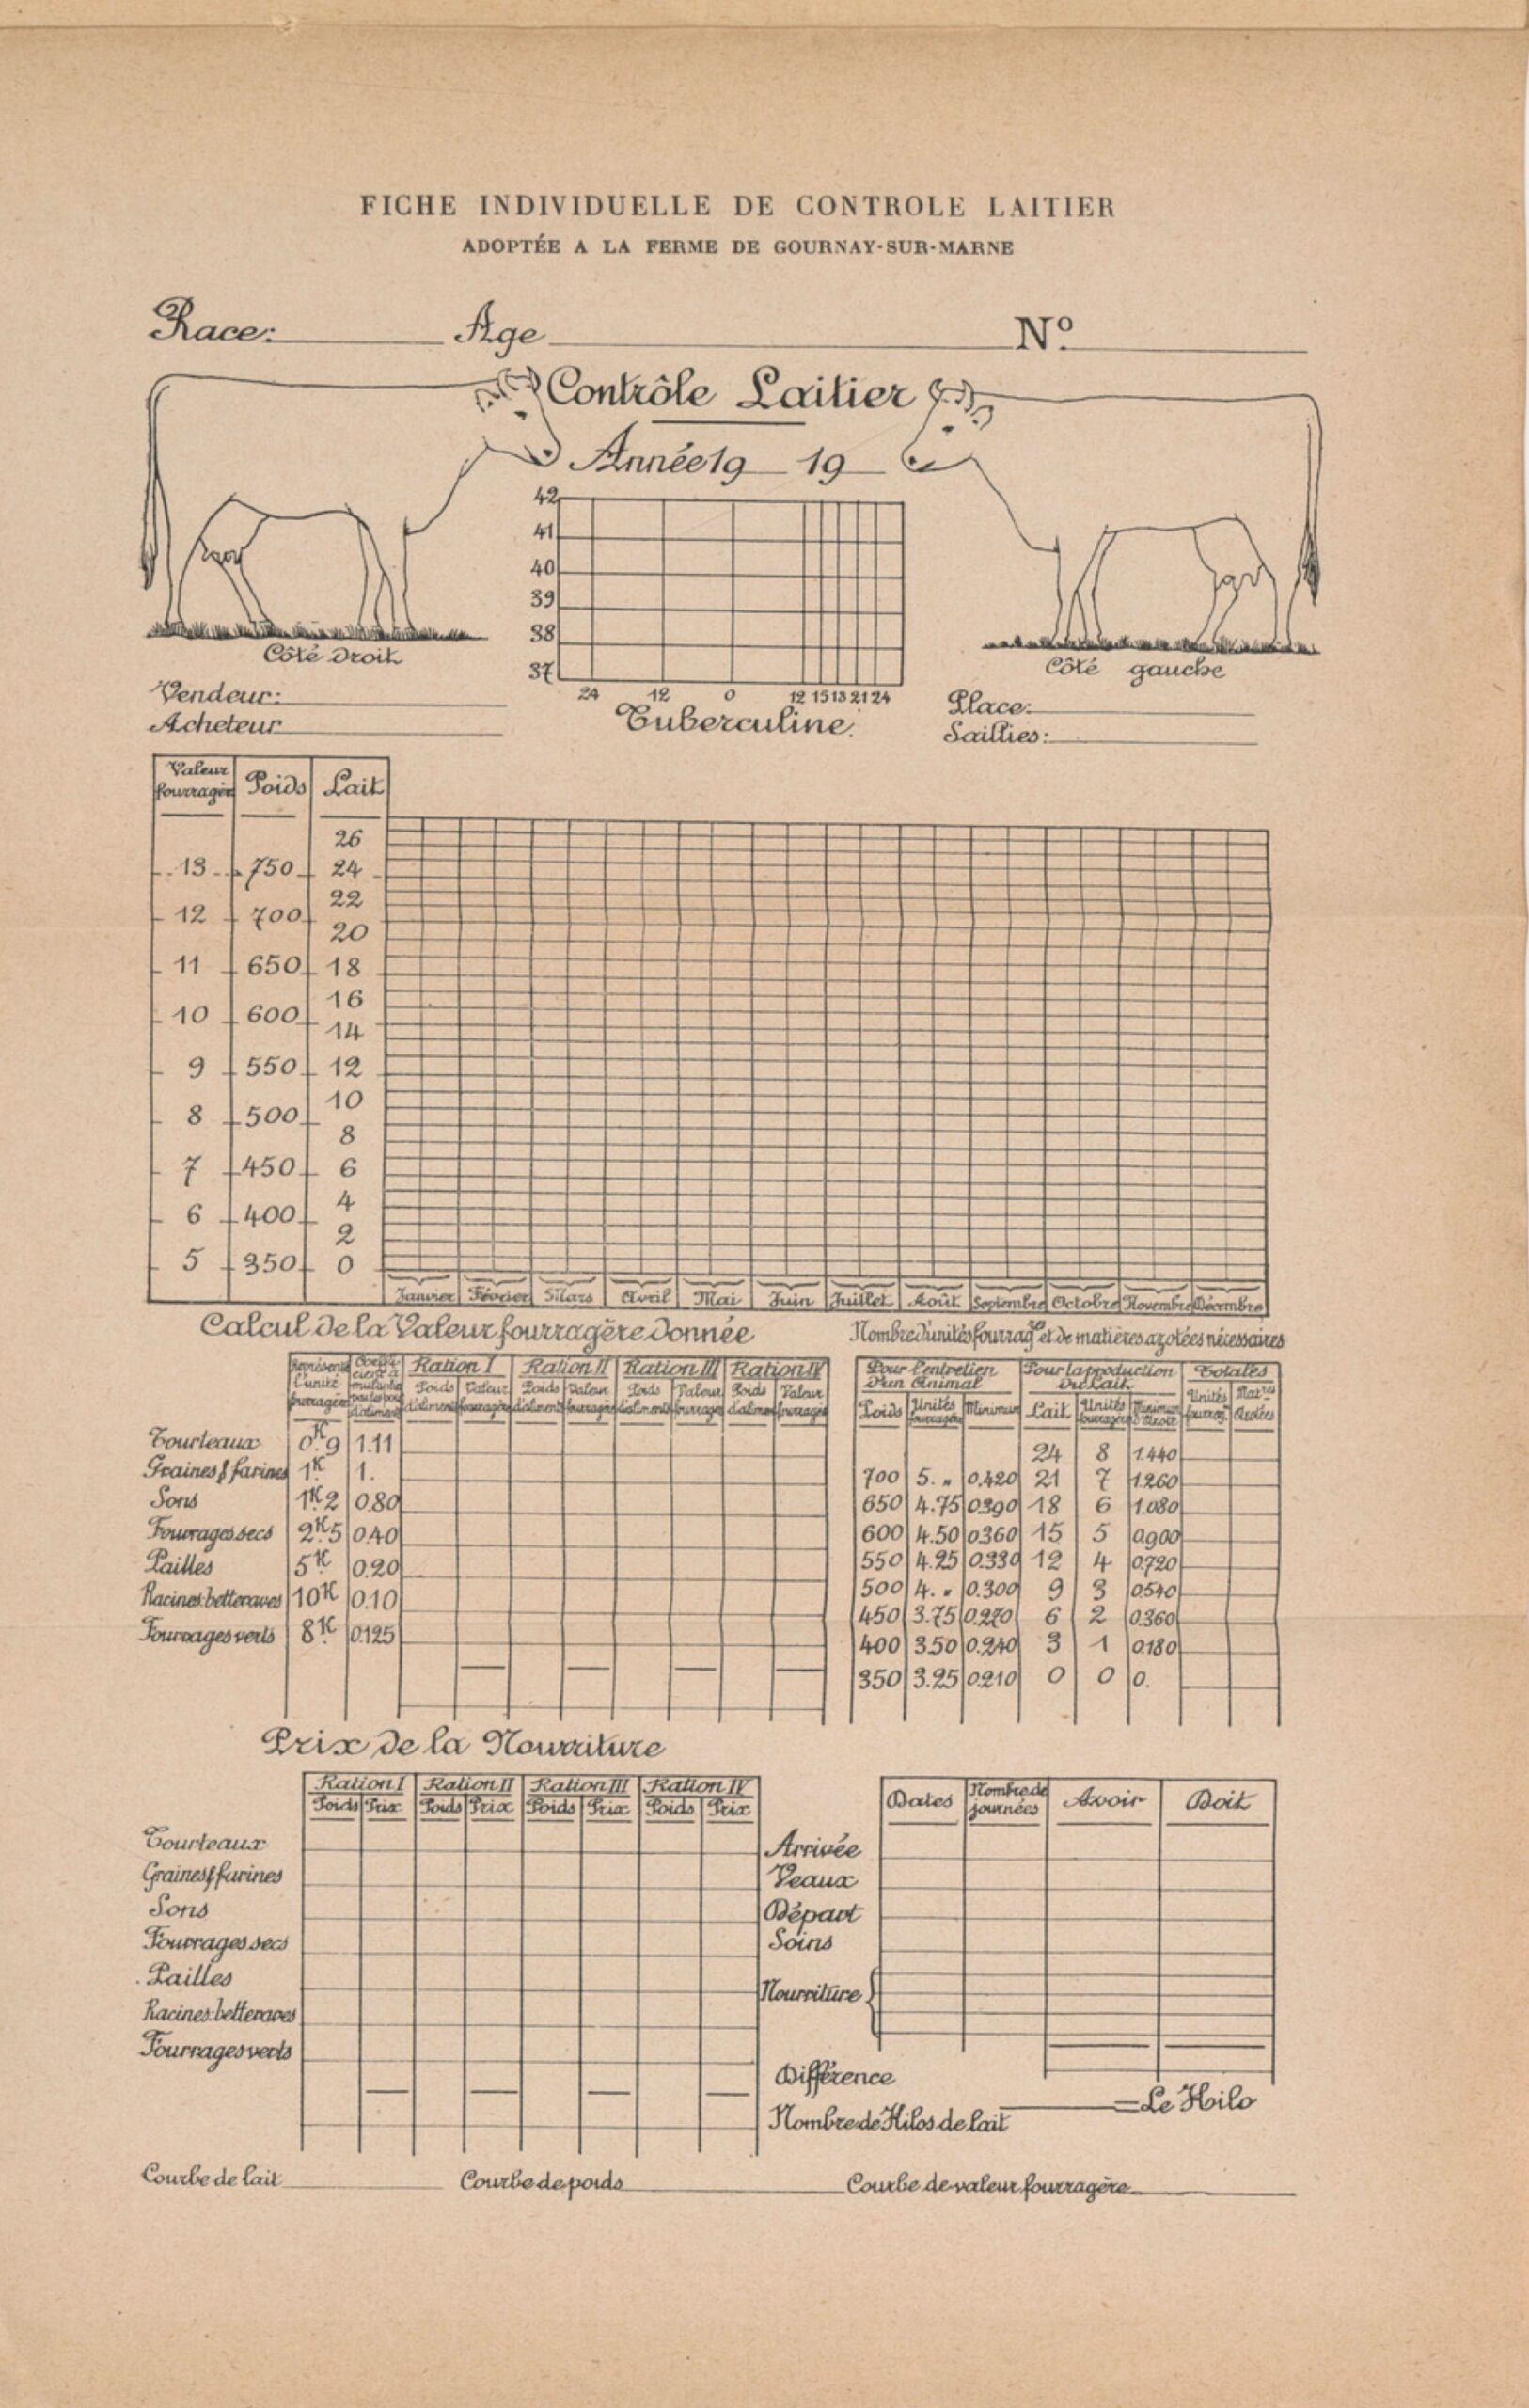 FICHE INDIVIDUELLE DE CONTROLE LAITIER
ADOPTÉE A LA FERME DE GOURNAY-SUR-MARNE
Race: Age Nº
Contrôle Laitier
Année 19 19
42
41
40
39
38
37
24 12 0 12 15 18 21 24
Tuberculine.
Côté Droit
Côté gauche
Vendeur:
Acheteur
Place:
Saillies:
Valeur fourragère Poids Lait
26
13 750 24
22
12 700
20
11 650 18
16
10 600
14
9 550 12
10
8 500
8
7 450 6
4
6 400
2
5 350 0
Janvier Février Mars Avril Mai Juin Juillet Août Septembre Octobre Novembre Décembre
Calcul de la Valeur fourragère Donnée
Ration I Ration II Ration III Ration IV
Poids d'aliment Valeur fourragère Poids d'aliment Valeur fourragère Poids d'aliment Valeur fourragère Poids d'aliment Valeur fourragère
Tourteaux 0K9 1.11
Graines & farines 1K 1.
Sons 1K2 0.80
Fourrages secs 2K5 0.40
Pailles 5K 0.20
Racines: betteraves 10K 0.10
Fourrages verts 8K 0.125
Nombre d'unités fourragres et de matières azotées nécessaires
Pour l'entretien d'un Animal Pour la production du Lait Totales
Poids Unités fourragères Minimum Lait Unités fourragères Minimum Unités fourrag. Matres Azotées
24 8 1.440
700 5. „ 0.420 21 7 1.260
650 4.75 0.390 18 6 1.080
600 4.50 0.360 15 5 0.900
550 4.25 0.330 12 4 0.720
500 4. „ 0.300 9 3 0.540
450 3.75 0.270 6 2 0.360
400 3.50 0.240 3 1 0.180
350 3.25 0.210 0 0 0.
Prix de la Nourriture
Ration I Ration II Ration III Ration IV
Poids Prix Poids Prix Poids Prix Poids Prix
Tourteaux
Graines & farines
Sons
Fourrages secs
Pailles
Racines: betteraves
Fourrages verts
Dates Nombre de journées Avoir Doit
Arrivée
Veaux
Départ
Soins
Nourriture
Différence
Nombre de Kilos de lait = Le Kilo
Courbe de lait Courbe de poids Courbe de valeur fourragère